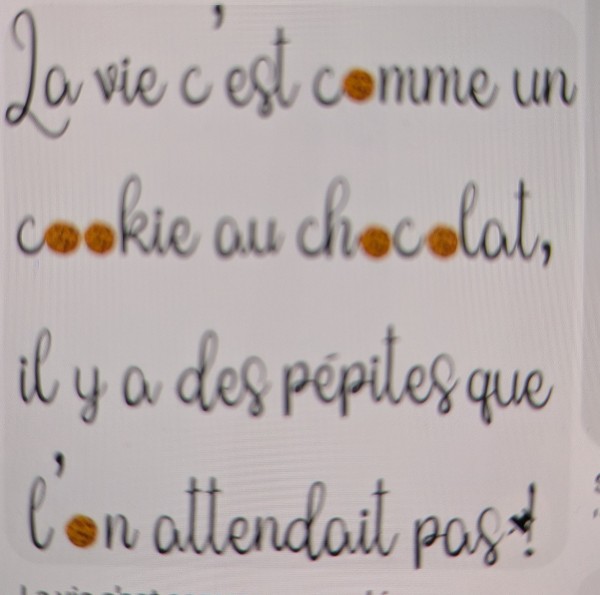 La vie c'est comme un
cookie au chocolat,
il y a des pépites que
l'on attendait pas!